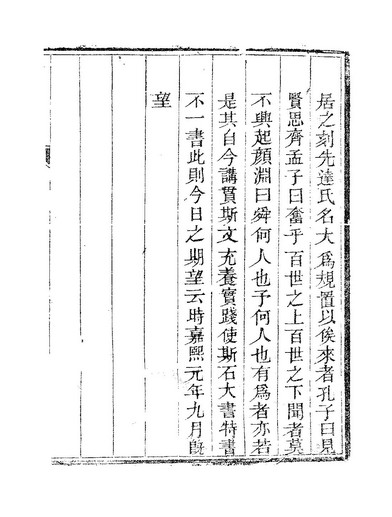 居之刻先達氏名大爲規置以俟來者孔子曰見
賢思齊孟子曰奮乎百世之上百世之下聞者莫
不興起顏淵曰舜何人也予何人也有爲者亦若
是其自今講貫斯文充養實踐使斯石大書特書
不一書此則今日之期望云時嘉熙元年九月旣
望